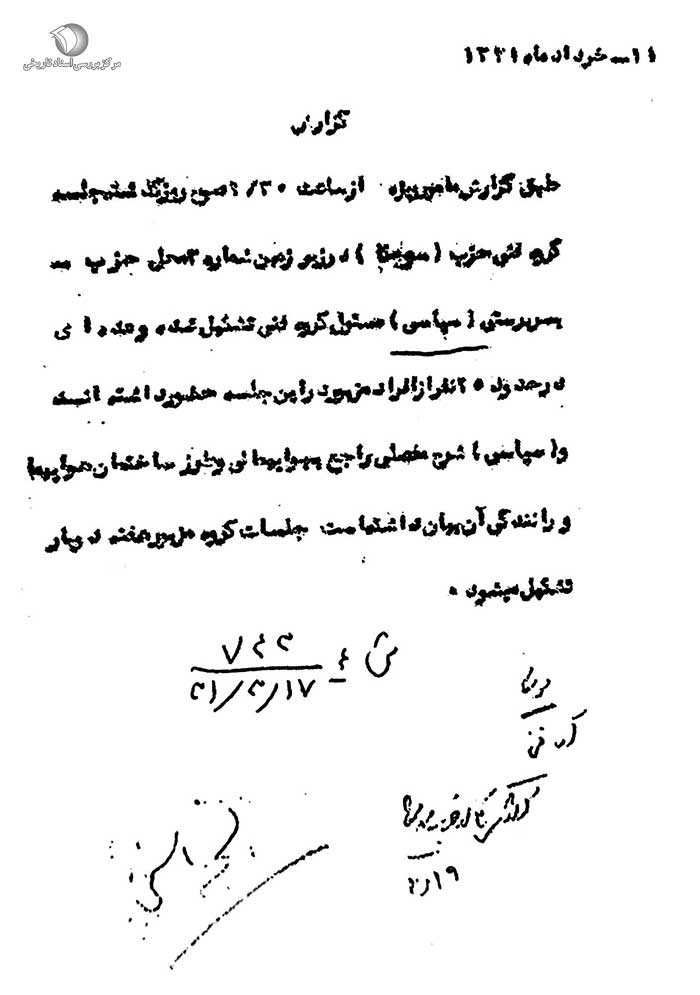 مرکز بررسی اسناد تاریخی
۱۱ـ خرداد ماه ۱۳۳۱
گزارش
طبق گزارش مامور ویژه از ساعت ۹/۳۰ صبح روز یکشنبه جلسه
گروه فنی حزب (سومکا) در زیر زمین شماره ۳ محل حزب به
سرپرستی (سپاسی) مسئول گروه فنی تشکیل شده و عده ای
در حدود ۲۵ نفر از افراد مزبور در این جلسه حضور داشته اند
و (سپاسی) شرح مفصلی راجع بهواپیمائی و طرز ساختمان هواپیما
و رانندگی آن بیان داشته است جلسات گروه مزبور هفته دو بار
تشکیل میشود .
ش ٤
۷٤۳
۳۱/۳/۱۷
۳/۱۹